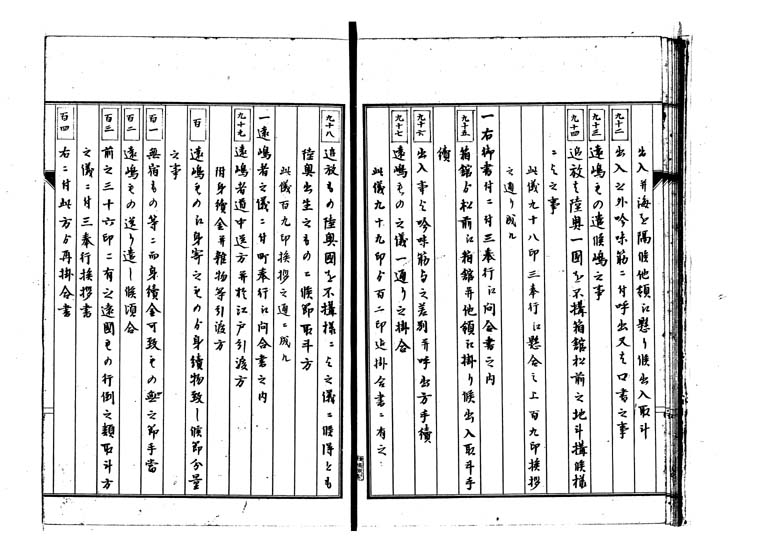 出入并海を隔候他領江懸り候出入取斗
九十二 出入之外吟味筋ニ付呼出又者口書之事
九十三 遠嶋もの遣候嶋之事
九十四 追放も陸奥一國を不搆箱舘松前之地斗搆候様
ニと之事
此儀九十八印三奉行江懸合之上百九印挨拶
之通り成ル
一右御書付ニ付三奉行江問合書之内
九十五 箱舘ゟ松前江箱舘并他領江掛り候出入取斗手
續
九十六 出入事と吟味筋与之差別并呼出方手續
九十七 遠嶋もの之儀一通り之掛合
此儀九十九印ゟ百二印迄掛合書ニ有之
九十八 追放もの陸奥國を不搆様ニと之儀ニ候得とも
陸奥出生之ものニ候節取斗方
此儀百九印挨拶之通ニ成ル
一遠嶋者之儀ニ付町奉行江問合書之内
九十九 遠嶋者道中送方并於江戸引渡方
附身續金并雜物等引渡方
百 遠嶋もの江身寄之ものゟ身續物致し候節分量
之事
百一 無宿もの等ニ而身續金可致もの無之節手當
百二 遠嶋もの送り遣し候頃合
百三 前之三十六印ニ有之遠國もの行倒之類取斗方
之儀ニ付三奉行挨拶書
百四 右ニ付此方ゟ再掛合書